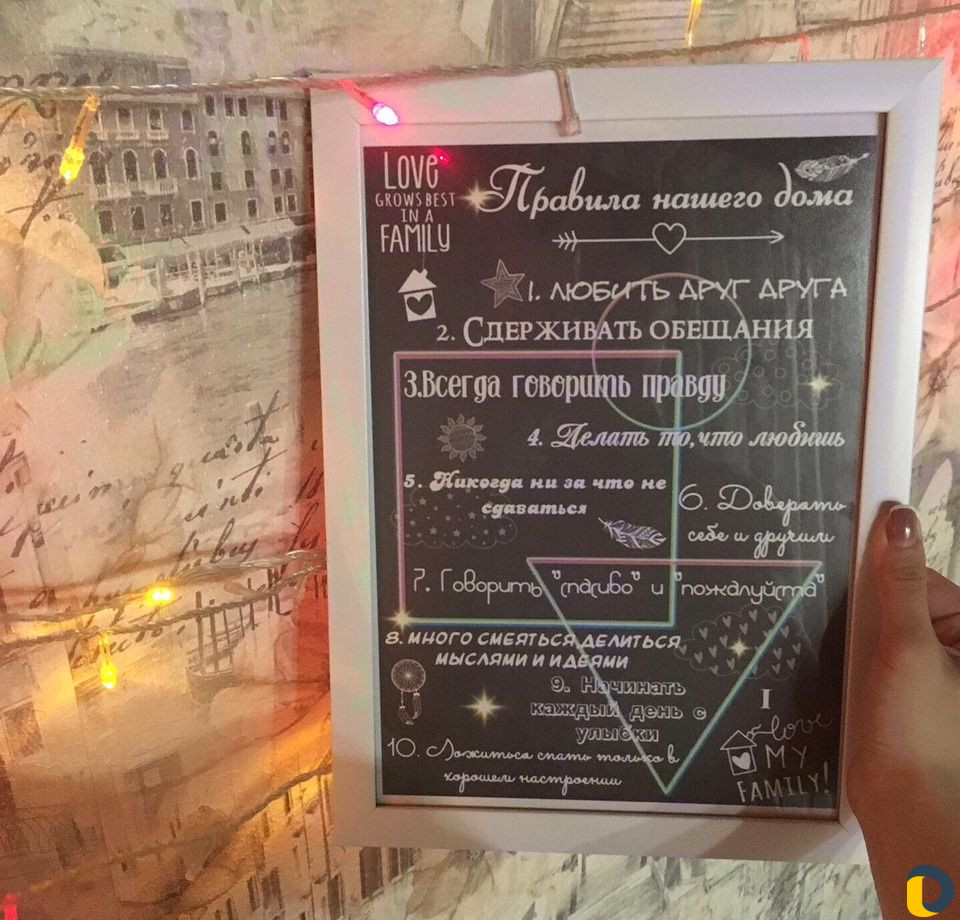 LOVE
GROWS BEST
IN A
FAMILY
Правила нашего дома
1. ЛЮБИТЬ ДРУГ ДРУГА
2. СДЕРЖИВАТЬ ОБЕЩАНИЯ
3.Всегда говорить правду
4. Делать то,что любишь
5. Никогда ни за что не
сдаваться
6. Доверять
себе и другим
7. Говорить "спасибо" и "пожалуйста"
8. МНОГО СМЕЯТЬСЯ,ДЕЛИТЬСЯ
МЫСЛЯМИ И ИДЕЯМИ
9. Начинать
каждый день с
улыбки
10. Ложиться спать только в
хорошем настроении
I
love
MY
FAMILY!